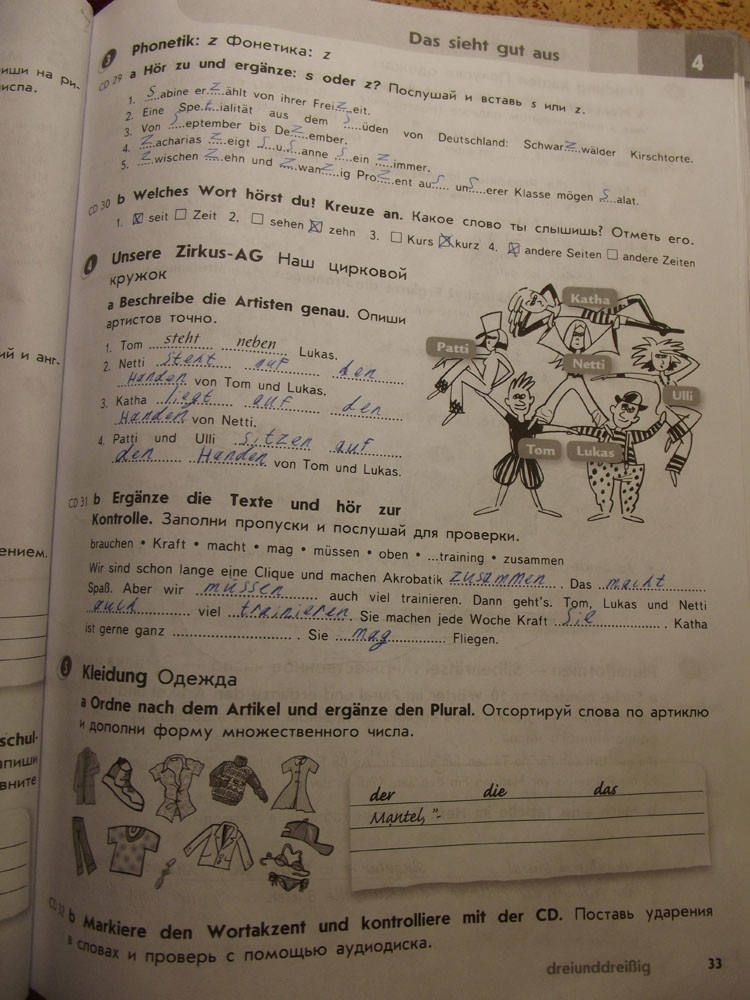 Das sieht gut aus
4
3 Phonetik: z Фонетика: z
CD 29 a Hör zu und ergänze: s oder z? Послушай и вставь s или z.
1. S abine er z ählt von ihrer Frei z eit.
2. Eine Spe t ialität aus dem S üden von Deutschland: Schwar z wälder Kirschtorte.
3. Von S eptember bis De z ember.
4. Z acharias z eigt S u s anne s ein z immer.
5. Z wischen z ehn und z wan z ig Pro z ent au s un s erer Klasse mögen S alat.
CD 30 b Welches Wort hörst du? Kreuze an. Какое слово ты слышишь? Отметь его.
1. ☒ seit ☐ Zeit 2. ☐ sehen ☒ zehn 3. ☐ Kurs ☒ kurz 4. ☒ andere Seiten ☐ andere Zeiten
4 Unsere Zirkus-AG Наш цирковой
кружок
a Beschreibe die Artisten genau. Опиши
артистов точно.
1. Tom steht neben Lukas.
2. Netti steht auf den
Handen von Tom und Lukas.
3. Katha liegt auf den
Handen von Netti.
4. Patti und Ulli sitzen auf
den Handen von Tom und Lukas.
Katha
Patti
Netti
Ulli
Tom Lukas
CD 31 b Ergänze die Texte und hör zur
Kontrolle. Заполни пропуски и послушай для проверки.
brauchen • Kraft • macht • mag • müssen • oben • ...training • zusammen
Wir sind schon lange eine Clique und machen Akrobatik zusammen. Das macht
Spaß. Aber wir müssen auch viel trainieren. Dann geht's. Tom, Lukas und Netti
auch viel trainieren. Sie machen jede Woche Kraft sie. Katha
ist gerne ganz ........ . Sie mag Fliegen.
5 Kleidung Одежда
a Ordne nach dem Artikel und ergänze den Plural. Отсортируй слова по артиклю
и дополни форму множественного числа.
der die das
Mantel, "-
CD 32 b Markiere den Wortakzent und kontrolliere mit der CD. Поставь ударения
в словах и проверь с помощью аудиодиска.
dreiunddreißig 33
иши на ри-
исла.
ий и анг.
ением.
schul-
апиши
вните